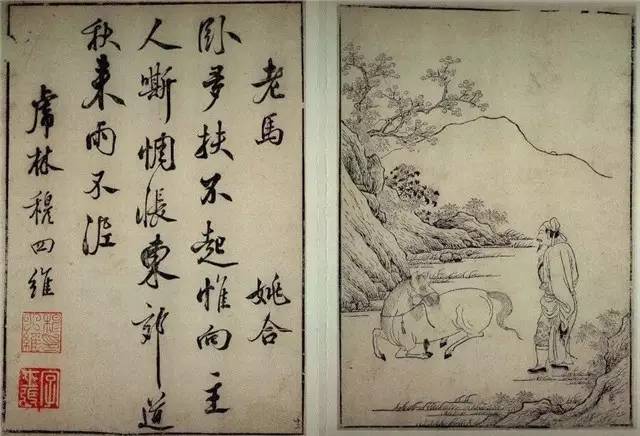 老馬　姚合
卧多扶不起惟向主
人嘶惆悵東郊道
秋来雨不泥
虎林穆四維